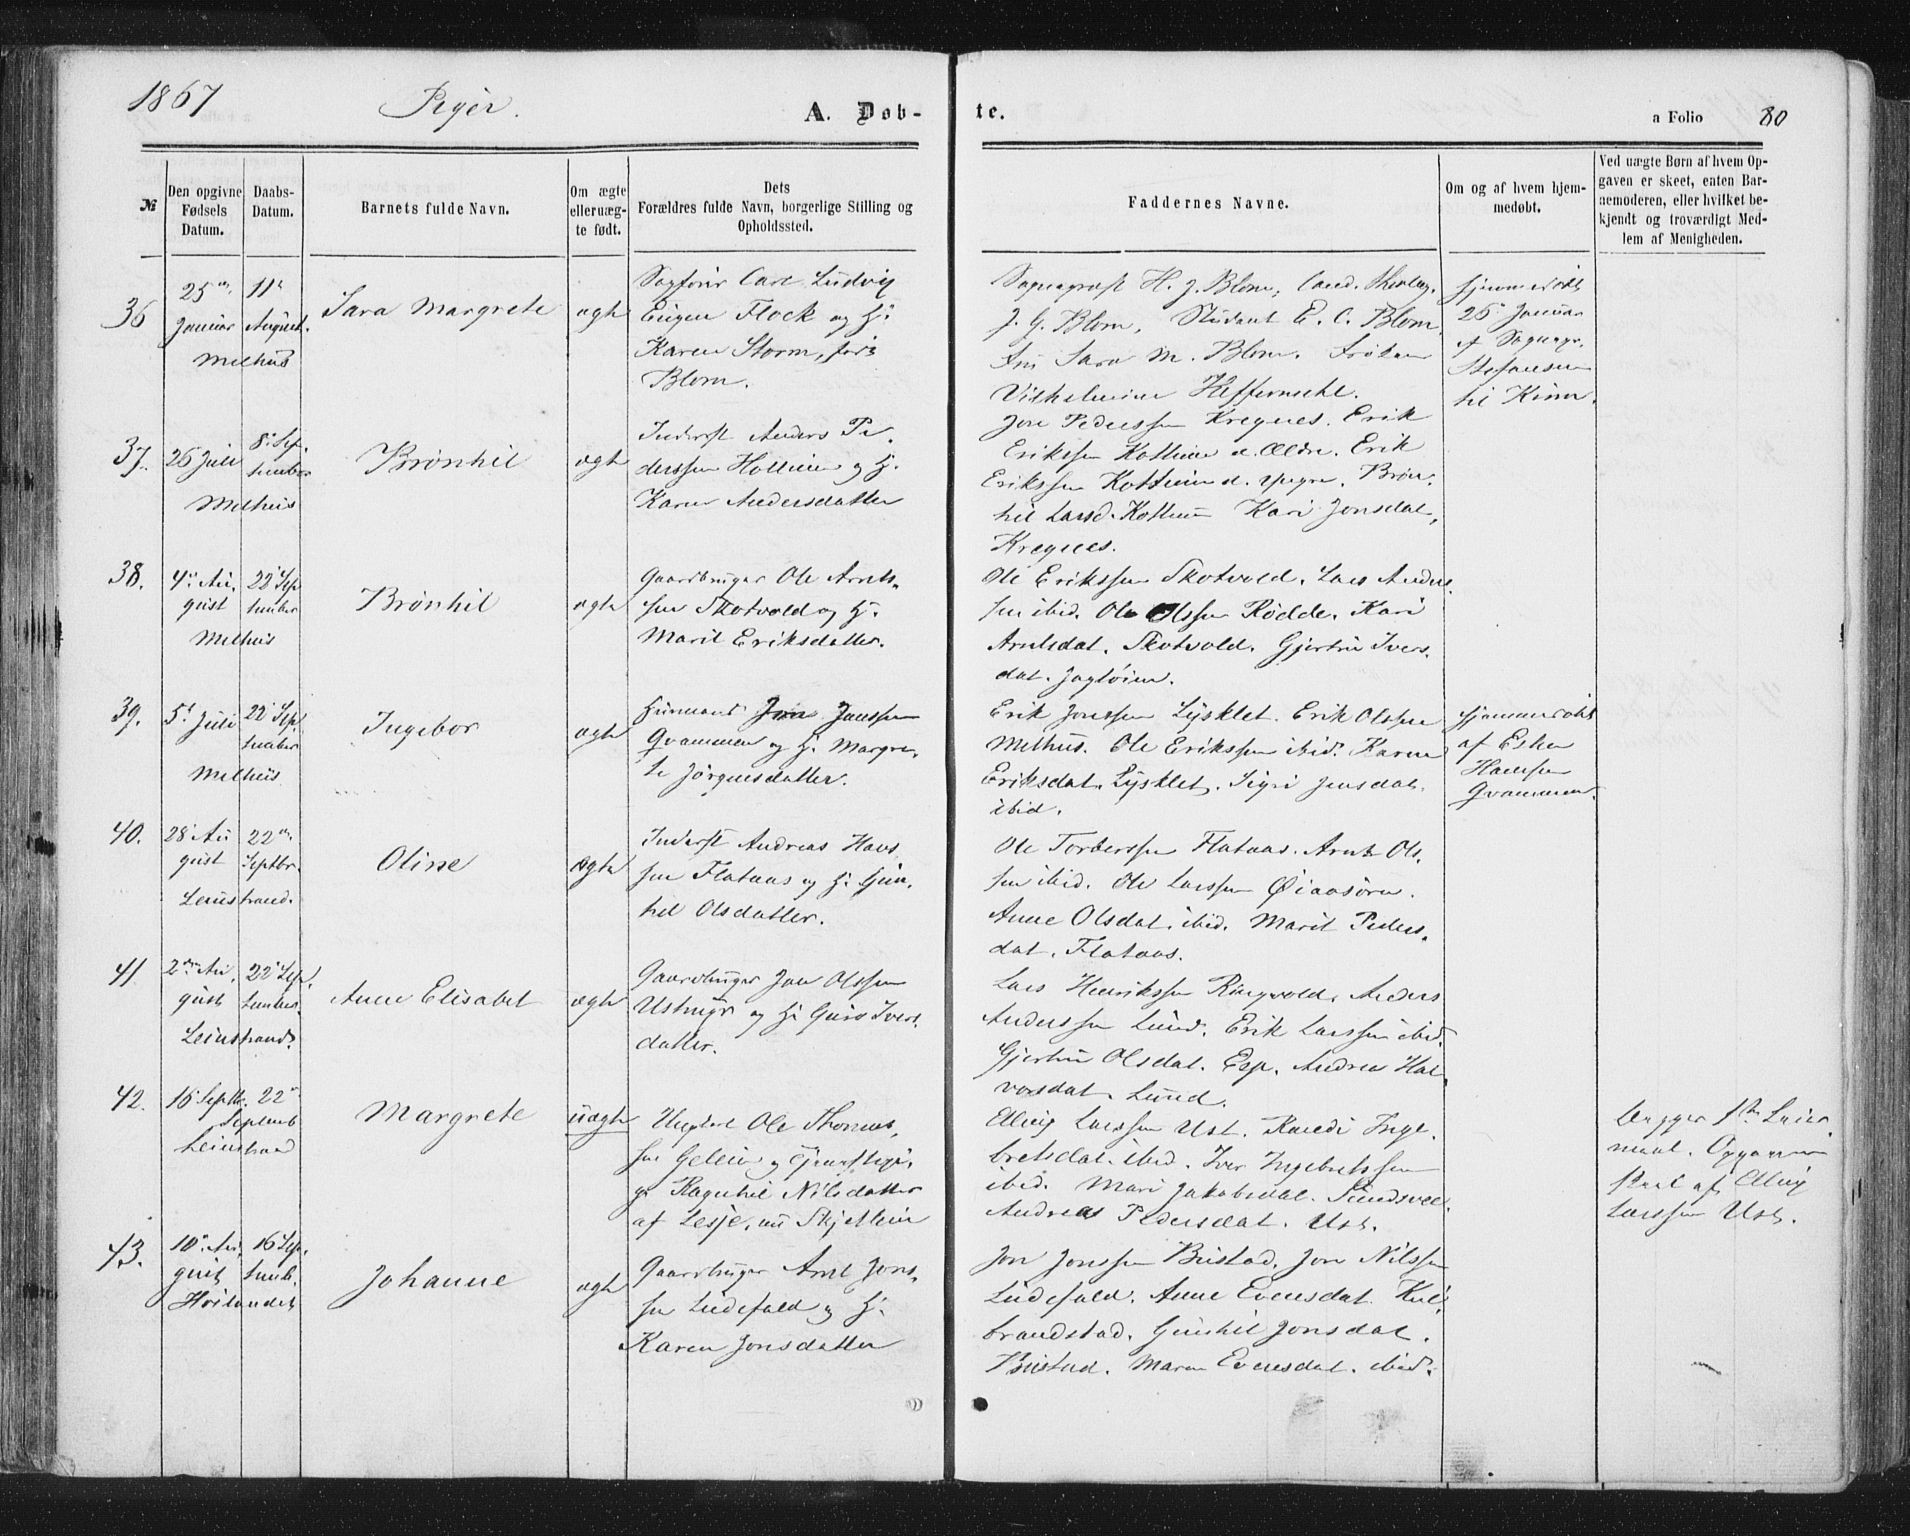 1867 Piger. A. Døb- te. a Folio 80
№
Den opgivne Fødsels Datum.
Daabs-Datum.
Barnets fulde Navn.
Om ægte eller uæg-te født.
Dets
Forældres fulde Navn, borgerlige Stilling og
Opholdssted.
Faddernes Navne.
Om og af hvem hjem-
medøbt.
Ved uægte Børn af hvem Op-
gaven er skeet, enten Bar-
nemoderen, eller hvilket be-
kjendt og troværdigt Med-
lem af Menigheden.
36
25de Januar
11te August.
Melhus
Sara Margrete
ægte
Sagfører Carl Ludvig
Eugen Flock og H.
Karen Storm, född
Blom.
Sogneprest H. J. Blom, Cand. Theolog.
J. G. Blom, Student E. C. Blom
Fru Sara M. Blom. Frøken
Vilhelmine Heffermehl.
Hjemmedøbt
26 Januar
af Sognepr.
Stefansen
til Kinn.
37.
26 Juli
8de Sep-
tember
Melhus
Brönhil
ægte
Inderst Anders Pe-
derssen Hollum og H.
Karen Andersdatter
Jon Pederssen Kregnes. Erik
Erikssen Kottum d. Ældre. Erik
Erikssen Kottum d. yngre. Brön-
hil Larsd. Kottum Kari Jonsdat.
Kregnes.
38.
4de Au-
gust
22de Sep
tember
Melhus
Brönhil
ægte
Gaardbruger Ole Arnts-
sen Skotvold og H.
Marit Eriksdatter.
Ole Erikssen Skotvold. Lars Anders
sen ibid. Ole Olssen Rödde. Kari
Arntsdat. Skotvold. Gjertru Ivers-
dat. Jagtöien.
39.
5te Juli
22de Sep
tember
Melhus
Ingebor
ægte
Husmand Jon Jonssen
Qvammen og H. Margre-
te Jörgensdatter.
Erik Jonssen Lysklet. Erik Olssen
Melhus. Ole Erikssen ibid. Karen
Eriksdat. Lysklet. Sigri Jensdat.
ibid.
Hjemmedöbt
af Esten
Hanssen
Qvammen.
40.
28de Au
gust
22de
Septbr.
Leinstrand.
Oline
ægte
Inderst Andreas Hans
sen Flataas og H. Gun-
hil Olsdatter.
Ole Torberssen Flataas. Arnt Ols-
sen ibid. Ole Larssen Øiaasören.
Anne Olsdat. ibid. Marit Peders-
dat. Flataas.
41
2den Au-
gust
22de Sep.
tember
Leinstrand.
Anne Elisabet
ægte
Gaardbruger Jon Olssen
Ustnyr og H. Guro Ivers-
datter.
Lars Henrikssen Ringvold. Anders
Anderssen Lund. Erik Larssen ibid.
Gjertru Olsdat. Esp. Andrea Hal-
vorsdat. Lund.
42.
16 Septbr.
22de
Septemb
Leinstrand
Margrete
uægte
Ungkarl Ole Thomas-
sen Gellein og Tjenestepi-
ge Ragnhil Nilsdatter
af Lesje, nu Skjetlein
Elling Larssen Ust. Randi Inge-
bretsdat. ibid. Iver Ingebretssen
ibid. Mari Jakobsdat. Sundsvee
Andreas Pedersdat. Ust.
begges 1ste Leier
maal. Opgaven
skeet af Elling
Larssen Ust.
43.
10de Au-
gust
16 Sep-
temb.
Höilandet
Johanne
ægte
Gaardbruger Arnt Jons-
sen Ludefald og H.
Karen Jonsdatter
Jon Jonssen Bustad. Jon Nilssen
Ludefald. Anne Evensdat. Kul-
brandstad. Gunhil Jonsdat.
Bustad. Maren Evensdat. ibid.